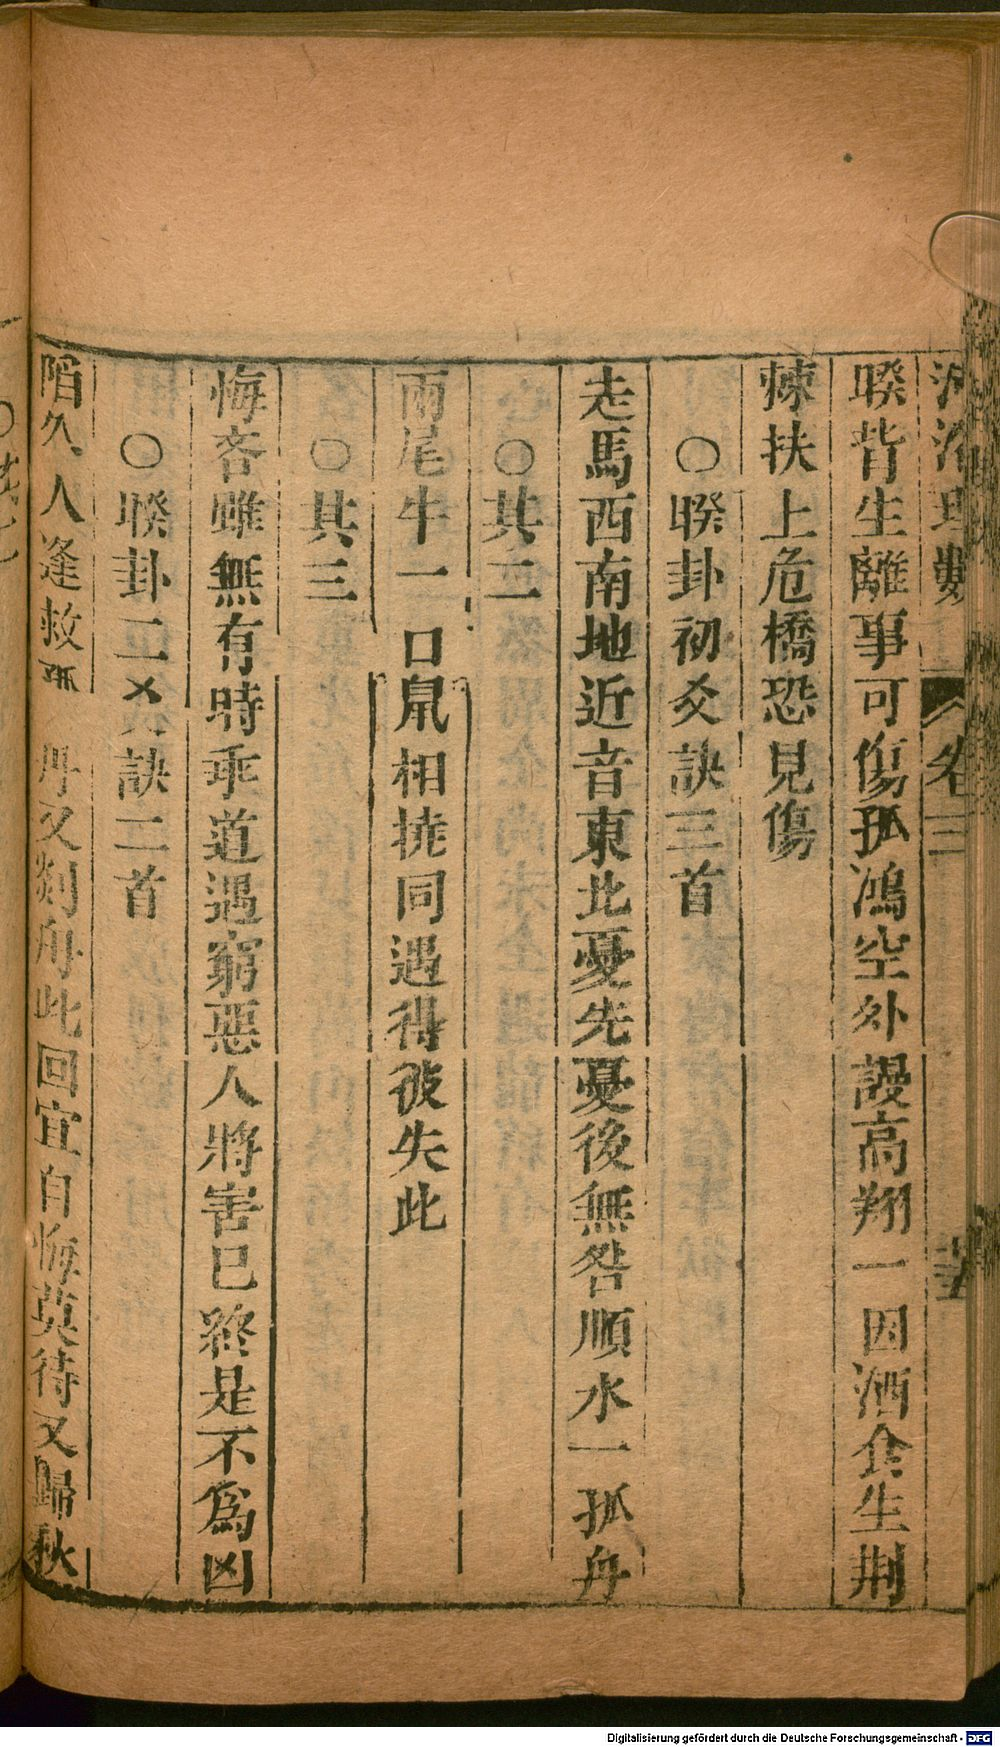 河洛理數 卷三
睽背生離事可傷孤鴻空外謾高翔一因酒食生荆
棘扶上危橋恐見傷
○睽卦初爻訣三首
走馬西南地近音東北憂先憂後無咎順水一孤舟
○其二
兩尾牛一口鼠相撓同遇得彼失此
○其三
悔吝雖無有時乖道遇窮惡人將害已終是不爲凶
○睽卦二爻訣二首
陷久人逢救 又剡舟此回宜自悔莫待又歸秋
Digitalisierung gefördert durch die Deutsche Forschungsgemeinschaft - DFG